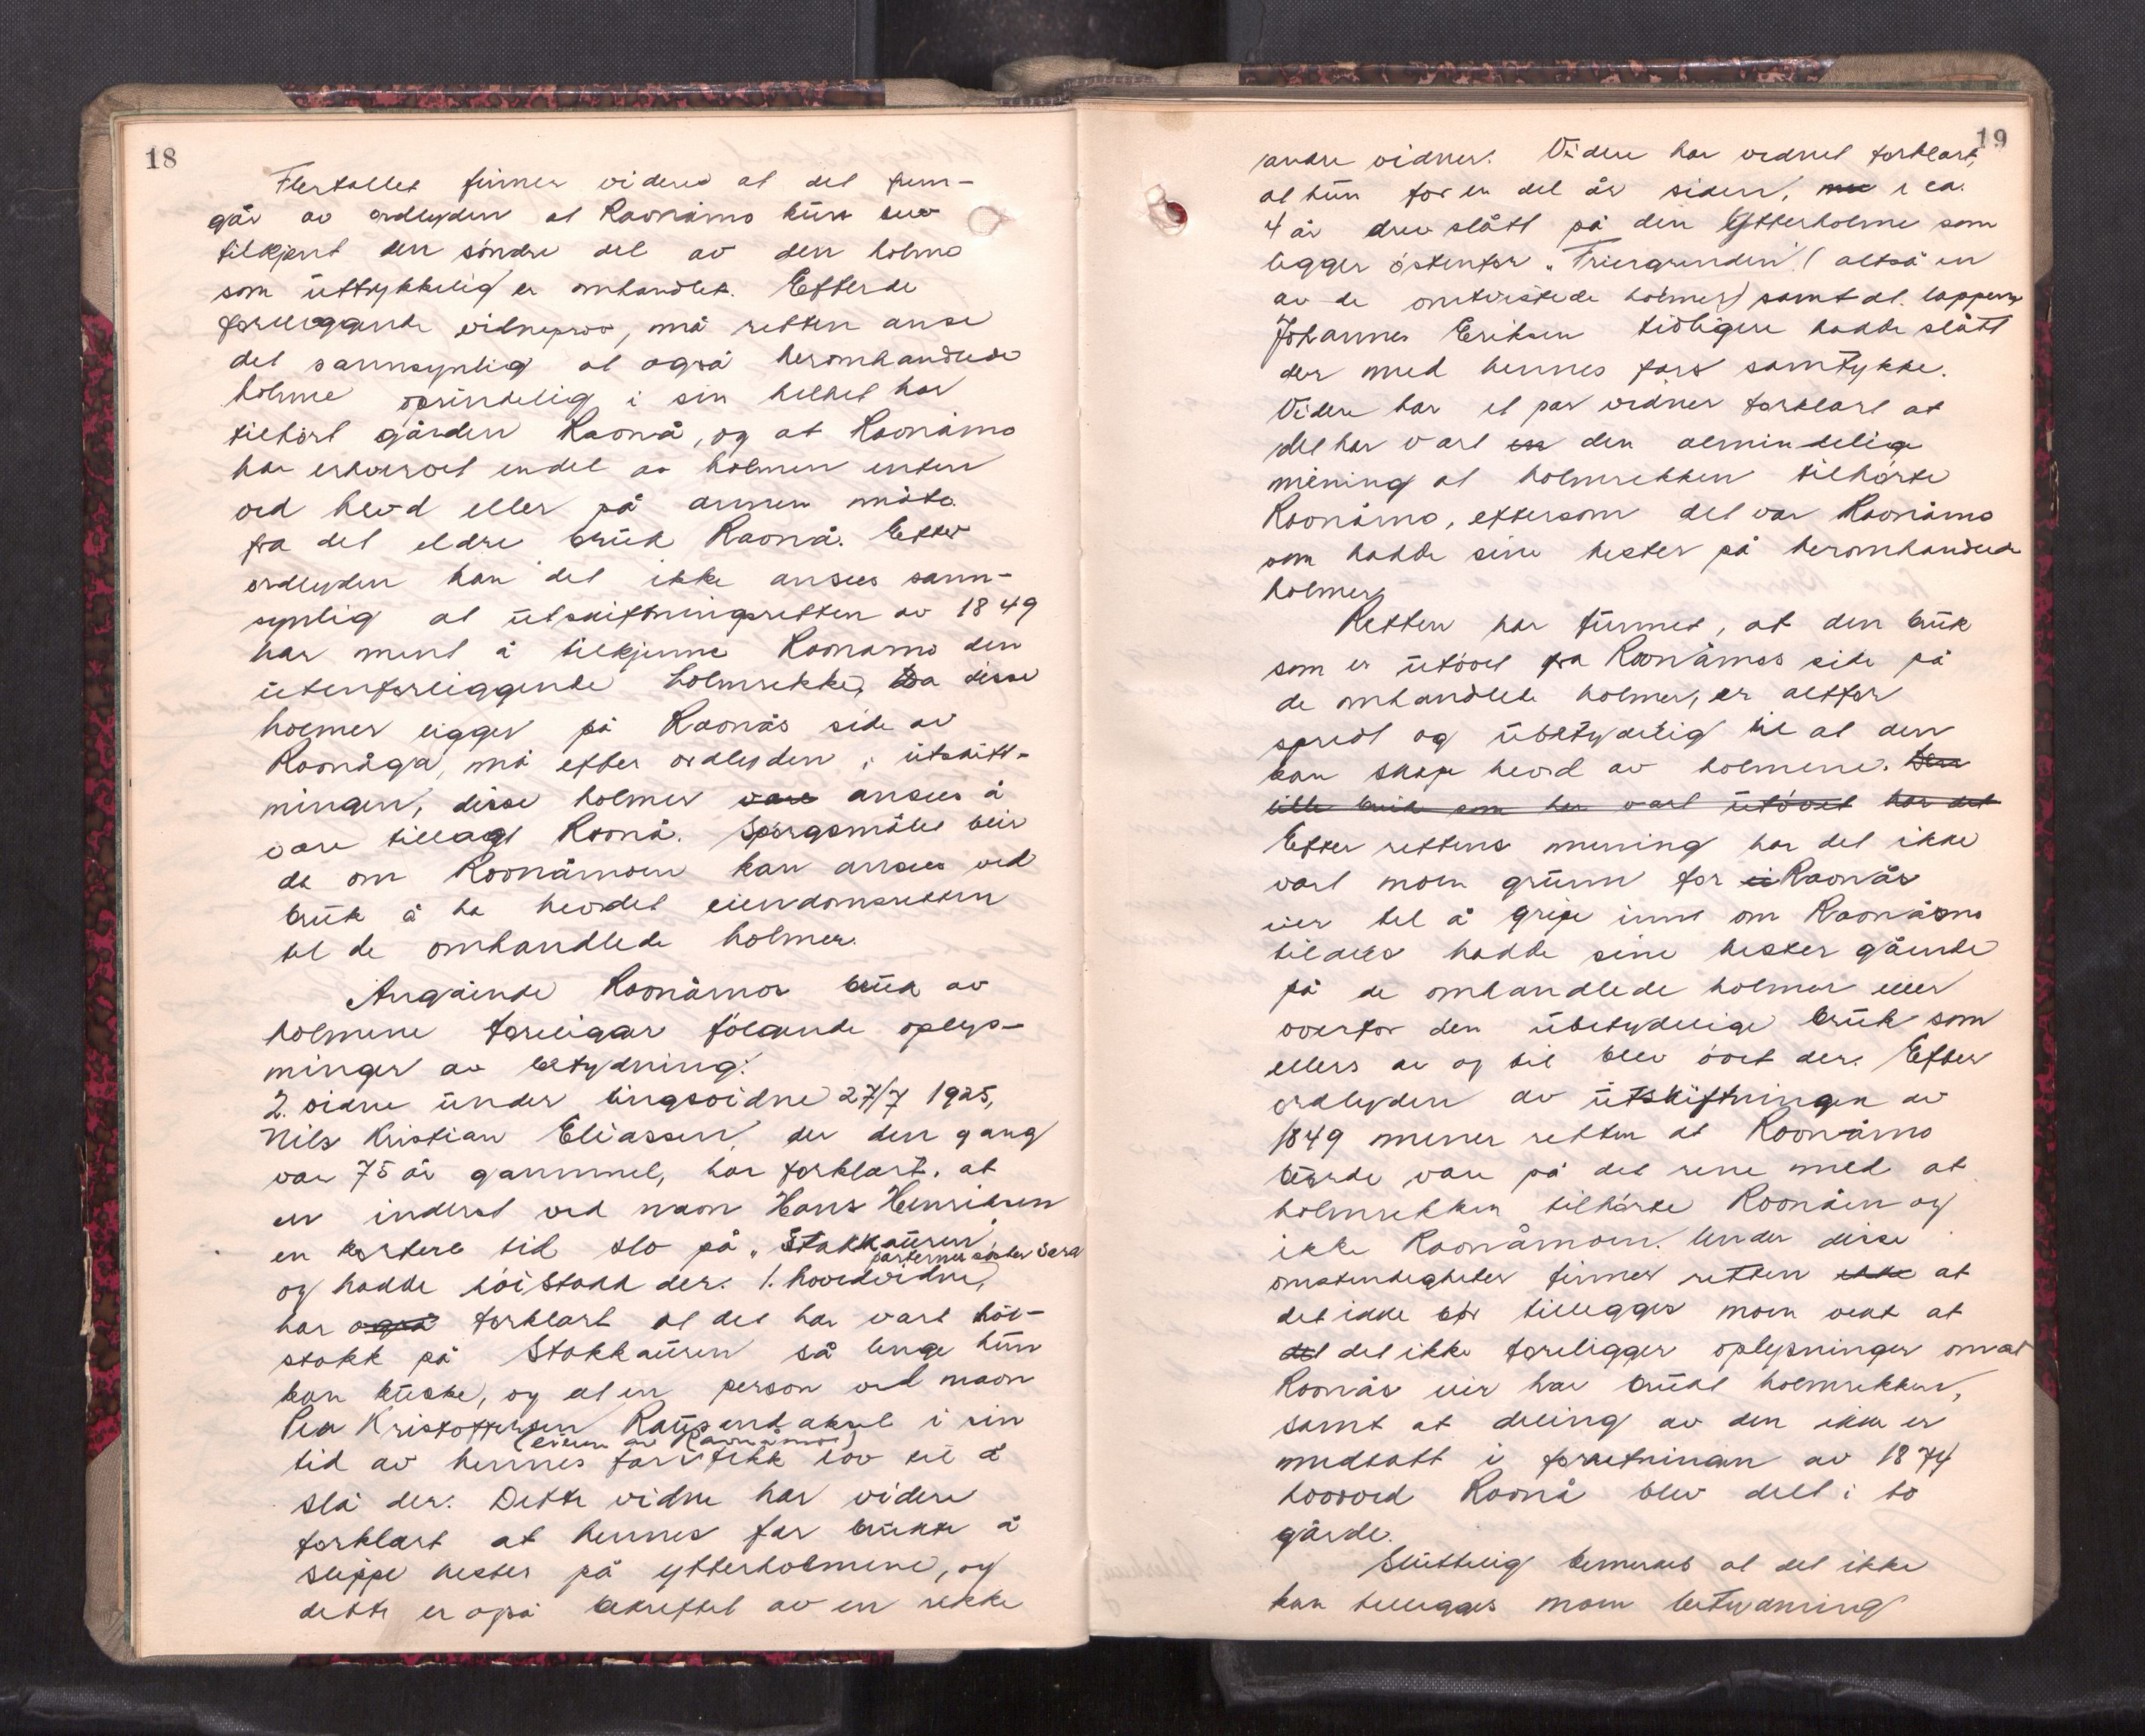 18
Flertallet finner videre at det frem-
går av ordlyden at Raonåmo kun blev
tilkjent den söndre del av den holme
som uttrykkelig er omhandlet. Efter de
foreliggende vidneprov, må retten anse
det sannsynlig at også heromhandlede
holme oprindelig i sin helhet har
tilhört gården Raonå, og at Raonåmo
har erhvervet en del av holmen enten
ved hevd eller på annen måte
fra det eldre bruk Raonå. Efter
ordlyden kan det ikke ansees sann-
synlig at utskiftningsretten av 1849
har ment å tilkjenne Raonamo den
utenforliggende holmrekke, Da disse
holmer ligger på Raonås side av
Raonåga, må efter ordlyden i utskift-
ningen, disse holmer vare ansees å
vare tillagt Raonå. Spörgsmålet blir
da om Raonåmoen kan ansees ved
bruk å ha hevdet eiendomsretten
til de omhandlede holmer.
Angående Raonåmos bruk av
holmene foreligger fölgende oplys-
ninger av betydning:
2. vidne under tingsvidne 27/7 1925,
Nils Kristian Eliassen, der den gang
var 75 år gammel, har forklart, at
en inderst ved navn Hans Henriksen
en kortere tid slo på „Stakkauren"
parternes söster Sara
og hadde höistakk der. 1. hovedvidne,
har også forklart at det har vart höi-
stakk på Stakkauren så lenge hun
kan huske, og at en person ved navn
Pea Kristoffersen Raus and akul i sin
(eieren av Raonåmo)
tid av hennes far fikk lov til å
slå der. Dette vidne har videre
forklart at hennes far brukte å
slippe hester på ytterholmene, og
dette er også bekreftet av en rekke
19
andre vidner. Videre har vidnet forklart,
at hun for en del år siden, i ca.
4 år drev slått på den Ytterholme som
ligger östenfor „Friergrunden" (altså en
av de omtvistede holmer) samt at lappen
Johannes Eriksen tidligere hadde slått
der med hennes fars samtykke.
Videre har et par vidner forklart at
det har vart en den almindelige
mening at holmrekken tilhörte
Raonåmo, eftersom det var Raonåmo
som hadde sine hester på heromhandlede
holmer.
Retten har funnet, at den bruk
som er utövet fra Raonåmos side på
de omhandlede holmer, er altfor
spredt og ubetydelig til at den
kan skape hevd av holmene. Den
lille bruk som her vart utövet har det
Efter rettens mening har det ikke
vart noen grunn for ei Raonås
eier til å gripe inn om Raonåmo
tildels hadde sine hester gående
på de omhandlede holmer eller
overfor den ubetydelige bruk som
ellers av og til blev övet der. Efter
ordlyden av utskiftningen av
1849 mener retten at Raonåmo
burde vare på det rene med at
holmrekken tilhörte Raonåen og
ikke Raonåmoen. Under disse
omstendigheter finner retten ikke at
det ikke bör tillegges noen vekt at
det det ikke foreligger oplysninger om at
Raonås eier har brukt holmrekken,
samt at deling av den ikke er
medtatt i forretningen av 1874
hvorved Raonå blev delt i to
gårde.
Sluttelig bemerkes at det ikke
kan tillegges noen betydning